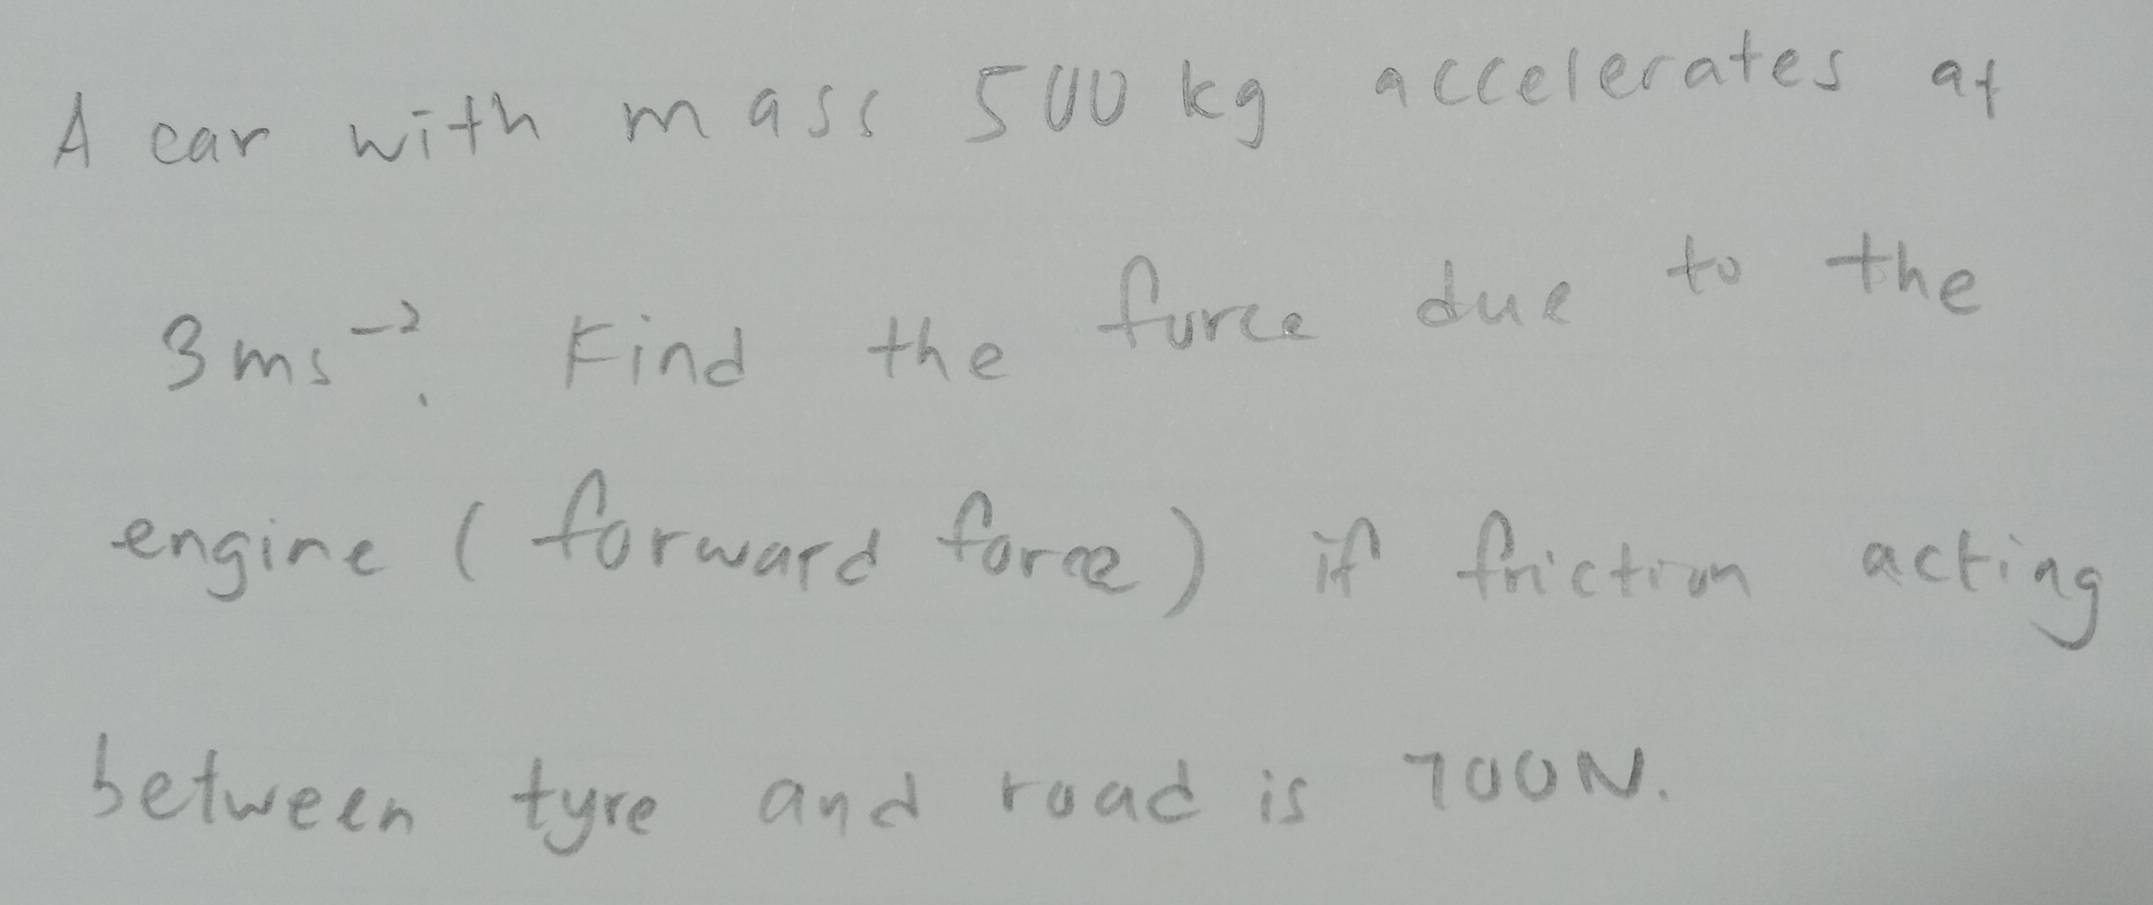 A car with mass 500 kg accelerates at
3 ms⁻². Find the force due to the
engine (forward force) if friction acting
between tyre and road is 700N.